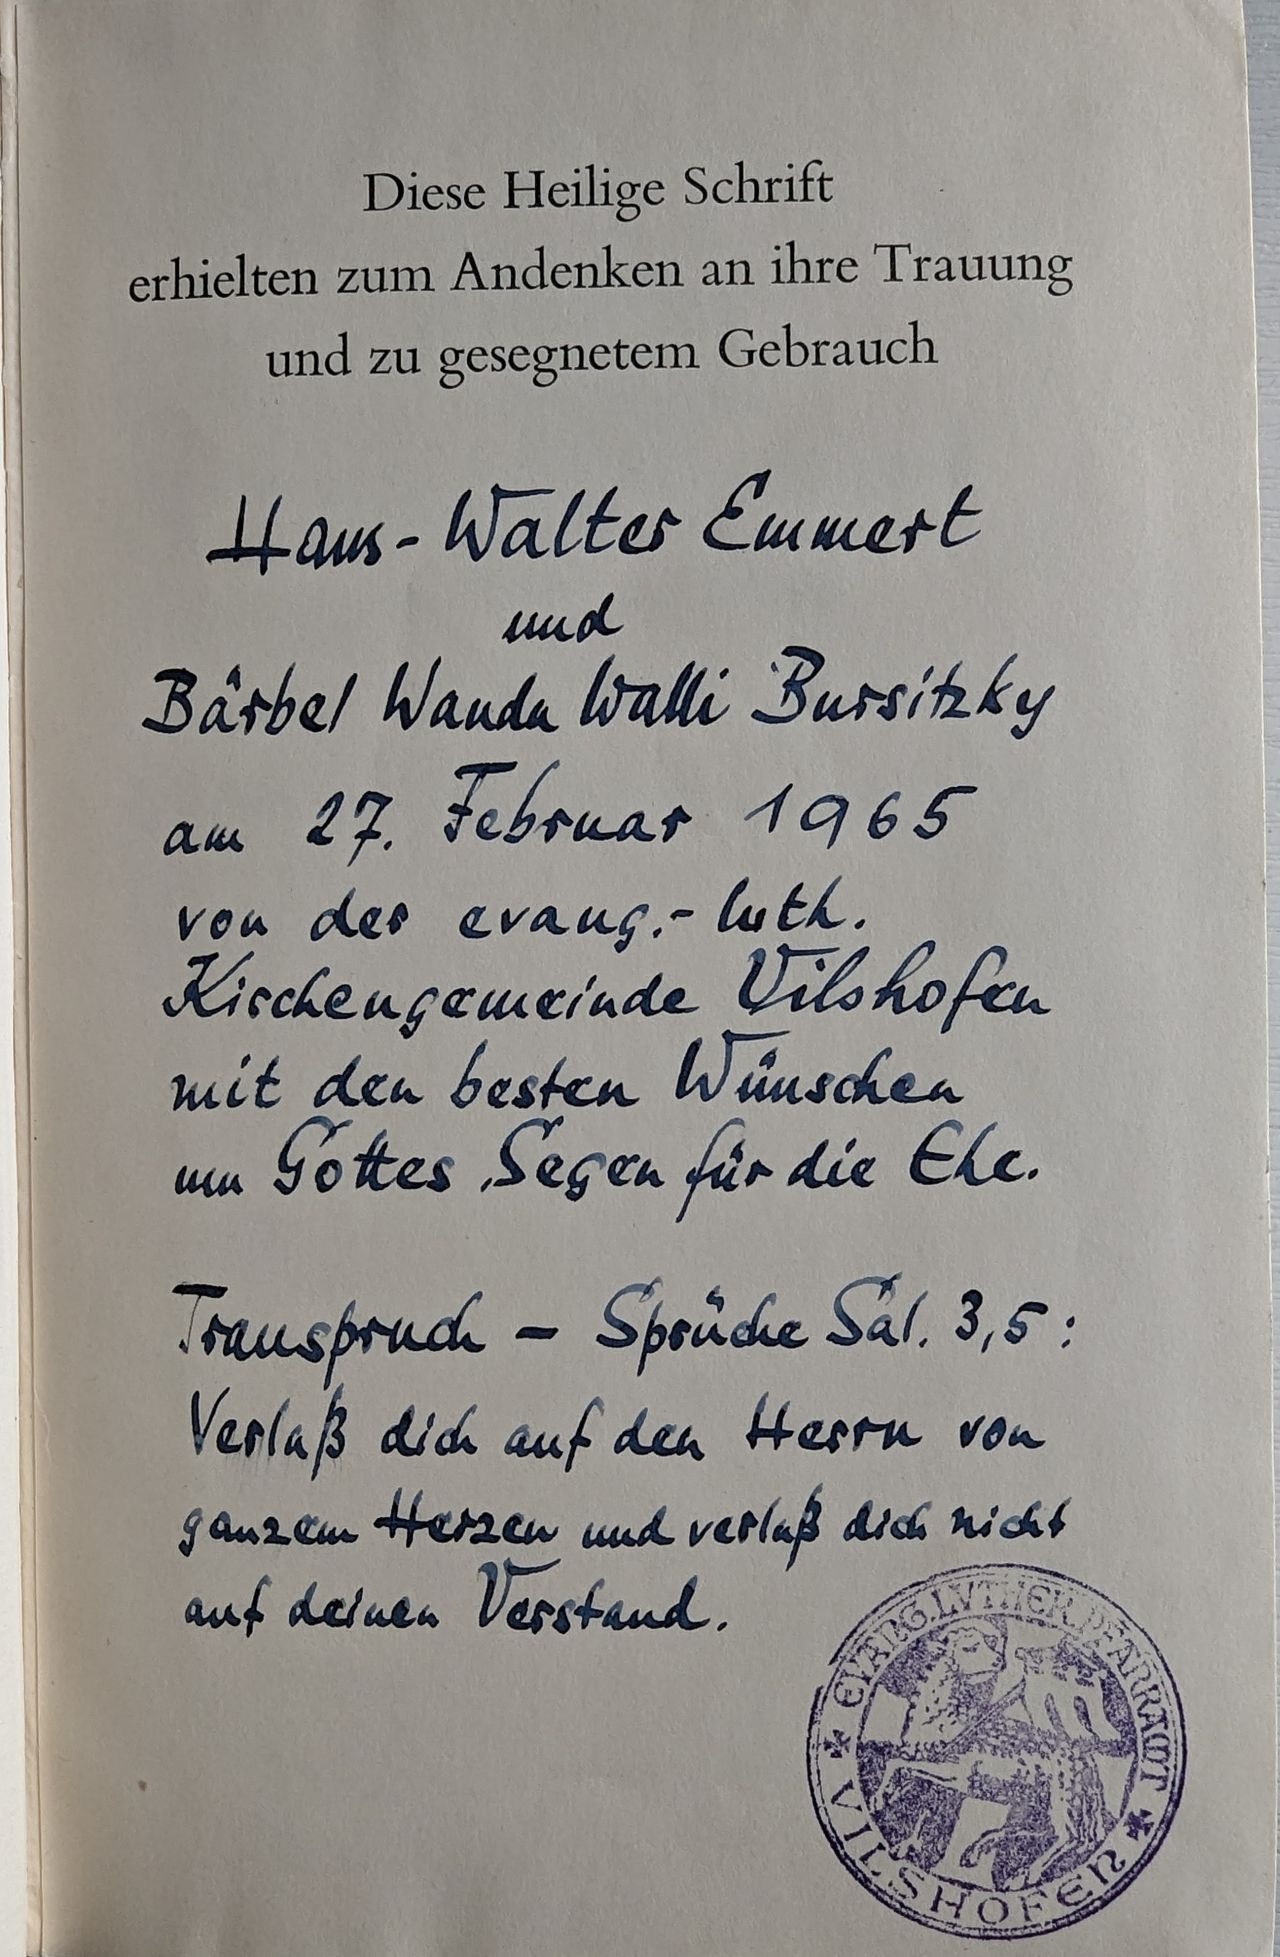 Diese Heilige Schrift
erhielten zum Andenken an ihre Trauung
und zu gesegnetem Gebrauch
Hans-Walter Emmert
und
Bärbel Wanda Walli Bursitzky
am 27. Februar 1965
von der evang.-luth.
Kirchengemeinde Vilshofen
mit den besten Wünschen
um Gottes Segen für die Ehe.
Trauspruch – Sprüche Sal. 3,5:
Verlaß dich auf den Herrn von
ganzem Herzen und verlaß dich nicht
auf deinen Verstand.
EVANG. LVTHER. PFARRAMT
VILSHOFEN